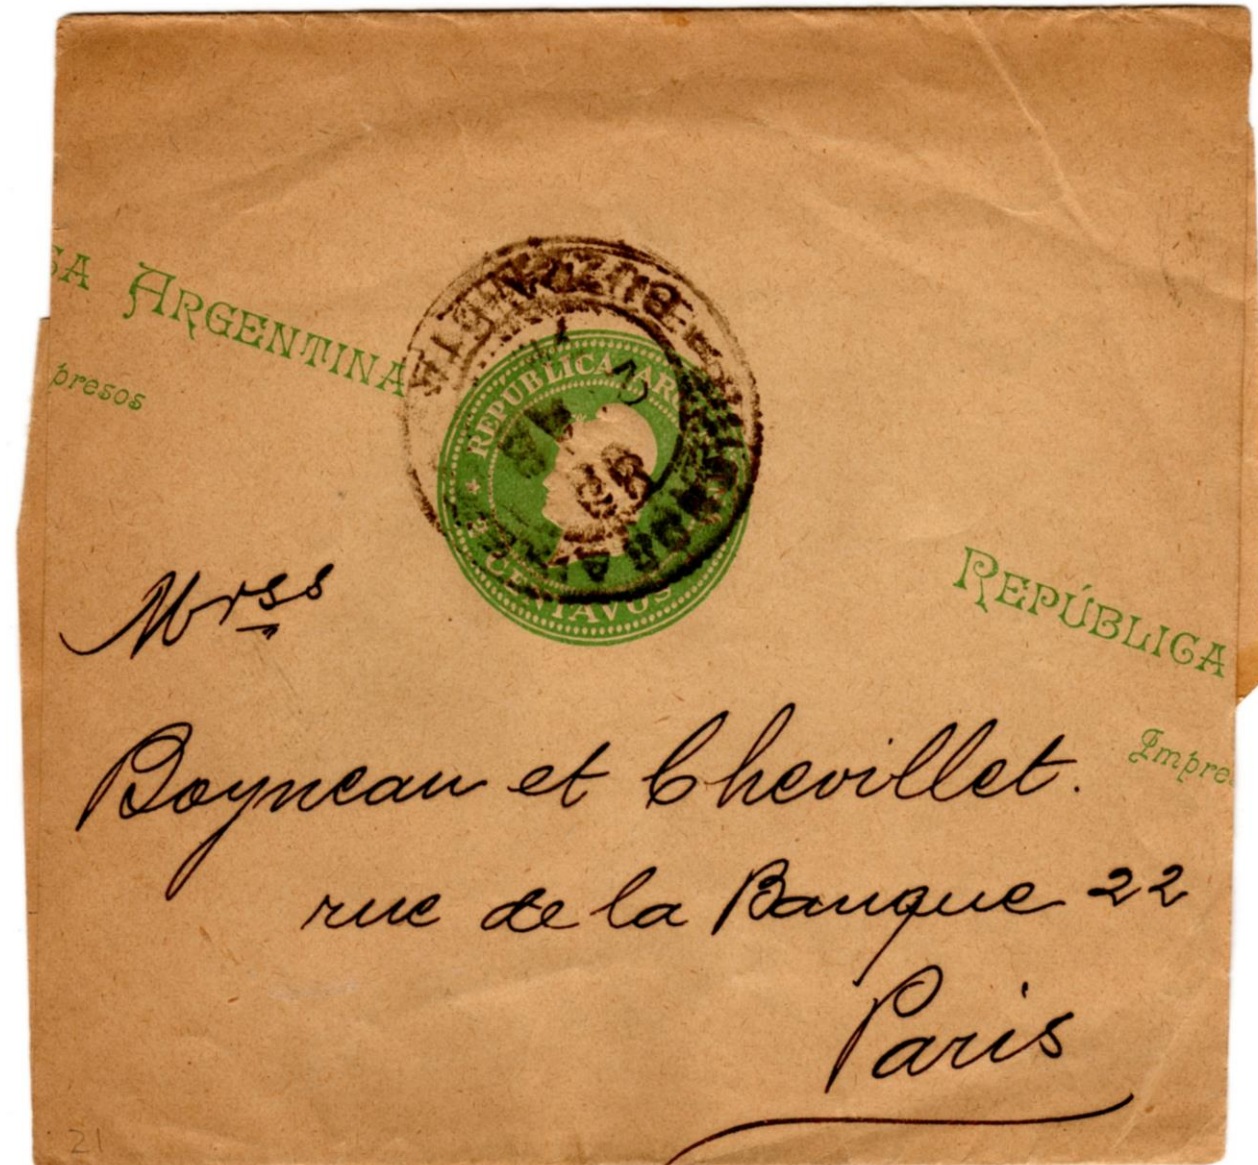 ARGENTINA
presos
REPÚBLICA AR
CENTAVOS
REPÚBLICA
Impre
Mrss
Boyneau et Chevillet.
rue de la Banque 22
Paris
21